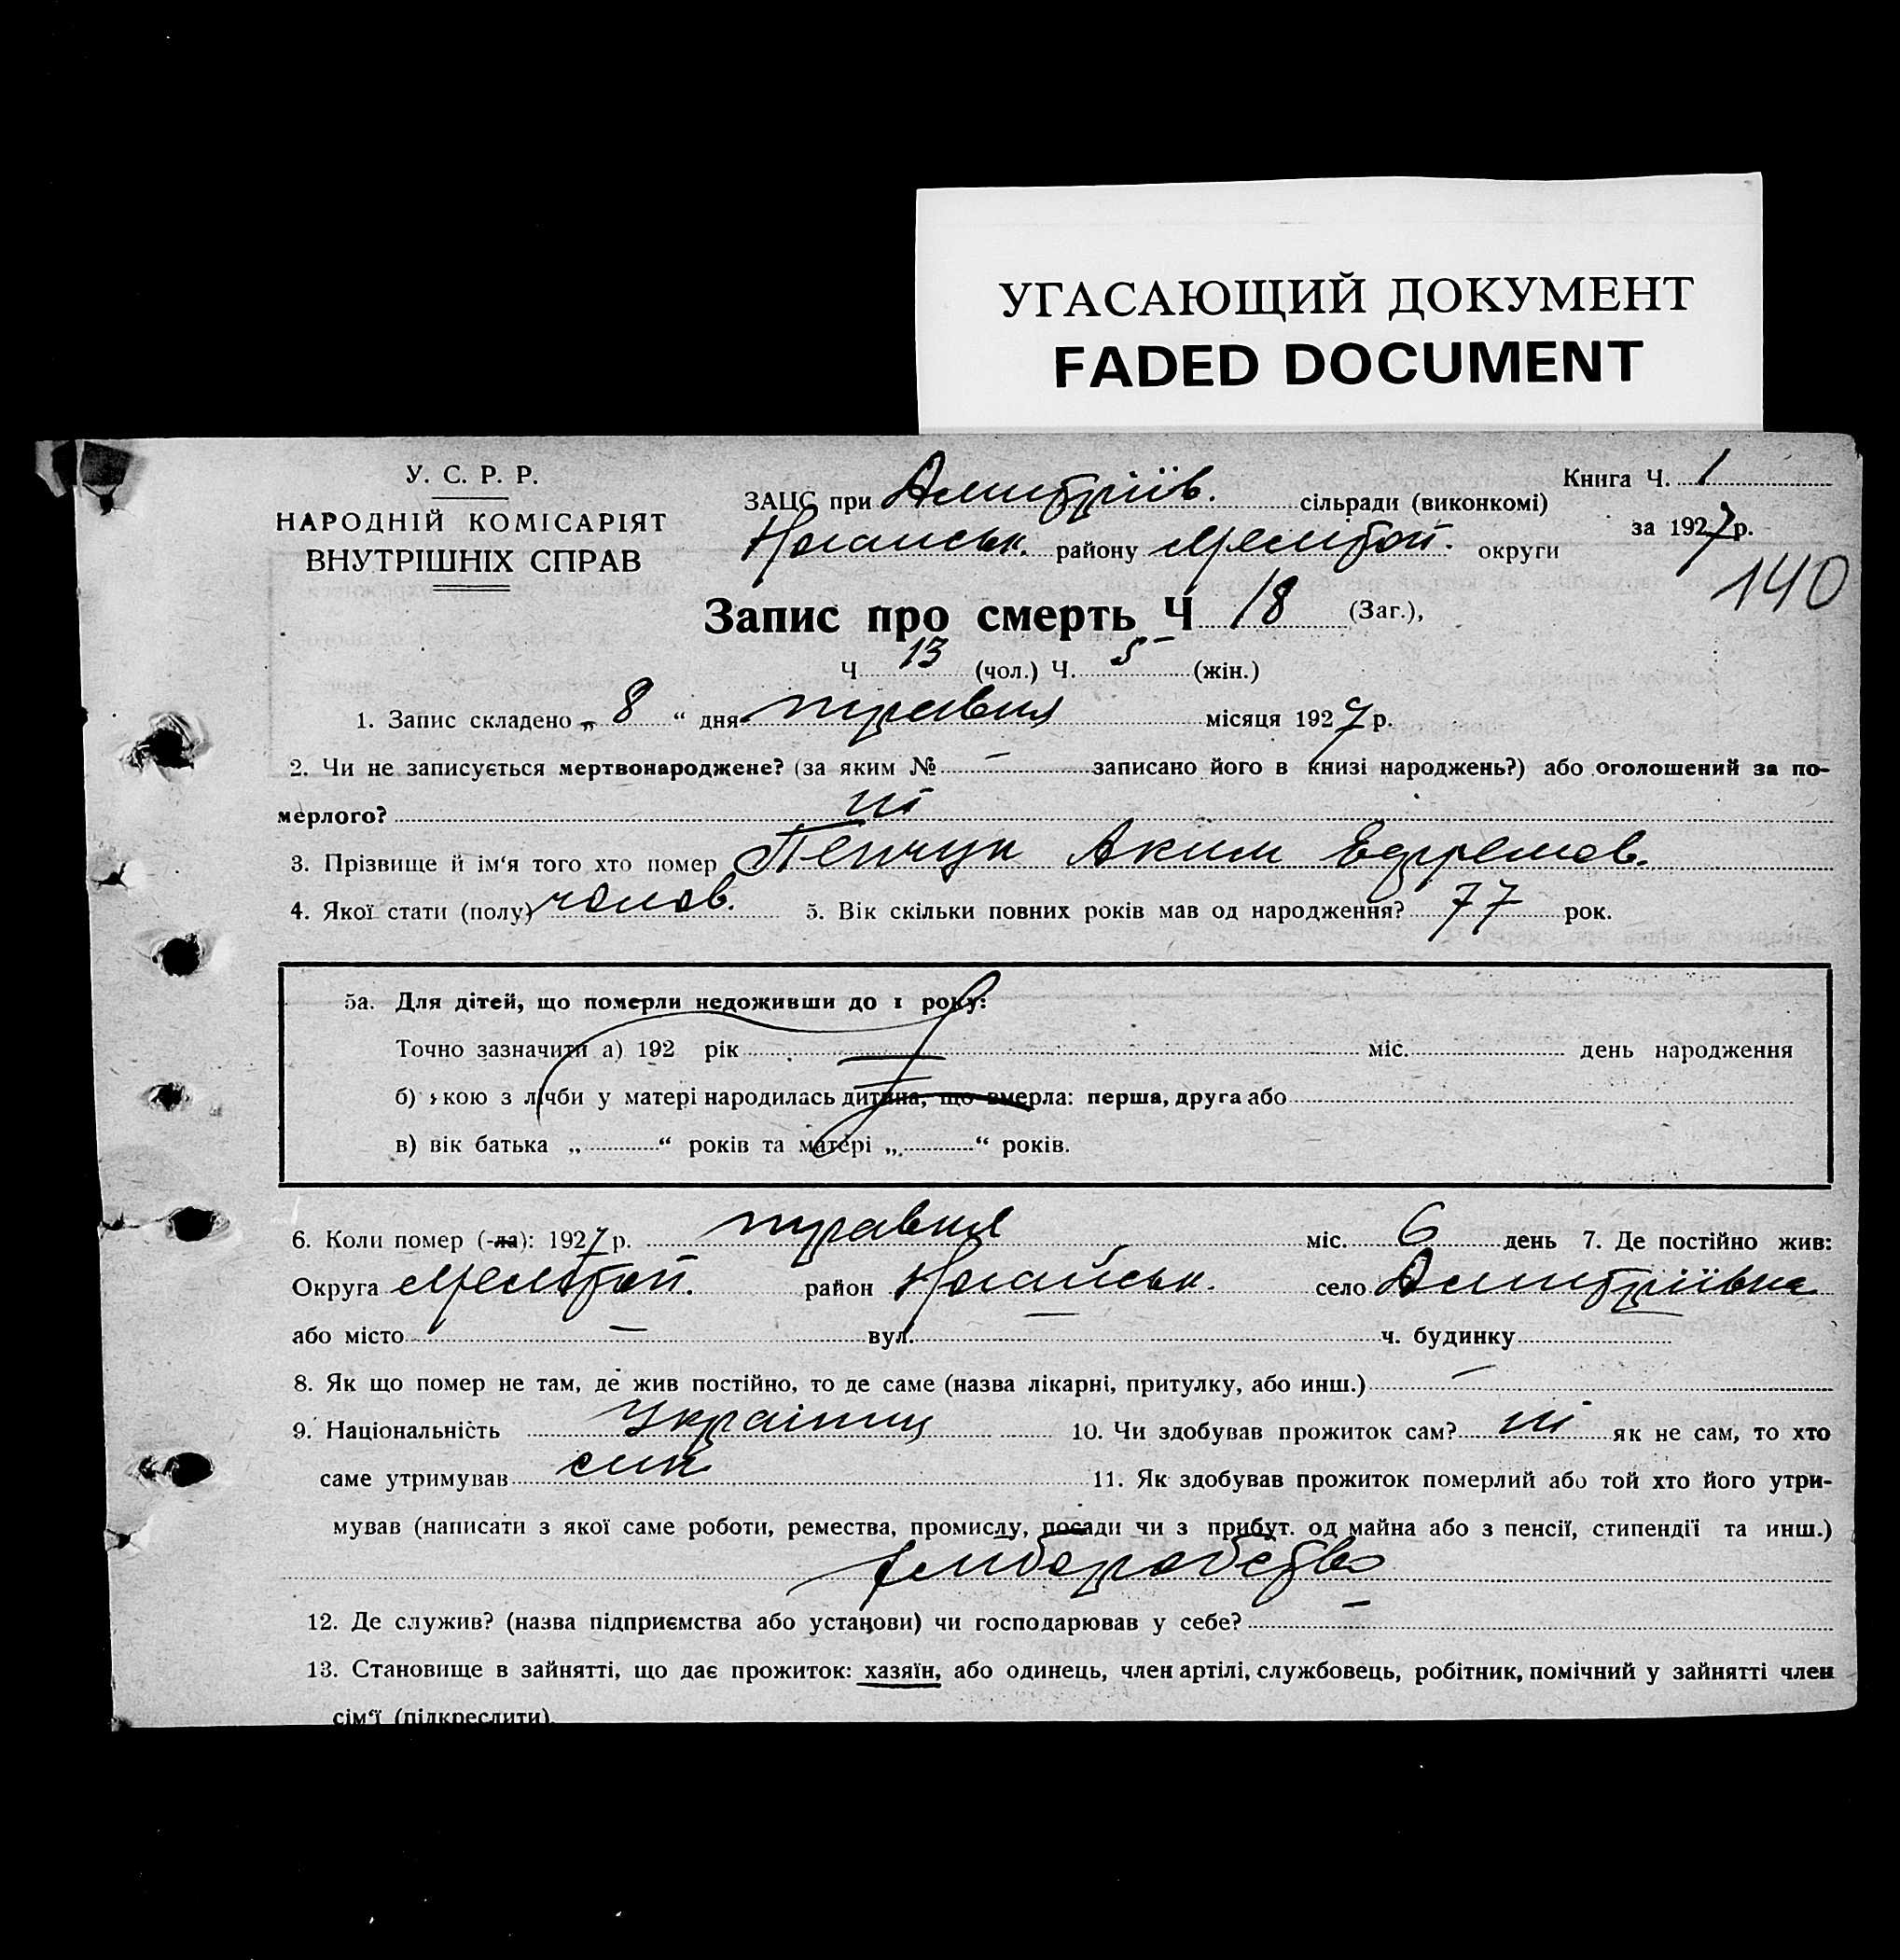 УГАСАЮЩИЙ ДОКУМЕНТ
FADED DOCUMENT
У. С. Р. Р.
НАРОДНІЙ КОМІСАРІЯТ
ВНУТРІШНІХ СПРАВ
ЗАЦС при Дмитріїв. сільради (виконкомі)
Ногайськ. району Мелітоп. округи
Книга Ч. 1
за 1927 р.
140
Запис про смерть Ч 18 (Заг.),
Ч 13 (чол.) Ч. 5 (жін.)
1. Запис складено „ 8 “ дня травня місяця 1927 р.
2. Чи не записується мертвонароджене? (за яким № — записано його в книзі народжень?) або оголошений за по-
мерлого? ні
3. Прізвище й ім'я того хто помер Пенчук Аким Ефремов.
4. Якої стати (полу) чолов. 5. Вік скільки повних років мав од народження? 77 рок.
5а. Для дітей, що померли недоживши до 1 року:
Точно зазначити а) 192 рік міс. день народження
б) якою з лічби у матері народилась дитина, що вмерла: перша, друга або
в) вік батька „ “ років та матері „ “ років.
6. Коли помер (-ла): 1927 р. травня міс. 6 день 7. Де постійно жив:
Округа Мелітоп. район Ногайськ. село Дмитріївка
або місто — вул. ч. будинку
8. Як що помер не там, де жив постійно, то де саме (назва лікарні, притулку, або инш.) —
9. Національність Українець 10. Чи здобував прожиток сам? ні як не сам, то хто
саме утримував син 11. Як здобував прожиток померлий або той хто його утри-
мував (написати з якої саме роботи, ремества, промислу, посади чи з прибут. од майна або з пенсії, стипендії та инш.)
хліборобство
12. Де служив? (назва підприємства або установи) чи господарював у себе? —
13. Становище в зайнятті, що дає прожиток: хазяїн, або одинець, член артілі, службовець, робітник, помічний у зайнятті член
сім'ї (підкреслити).